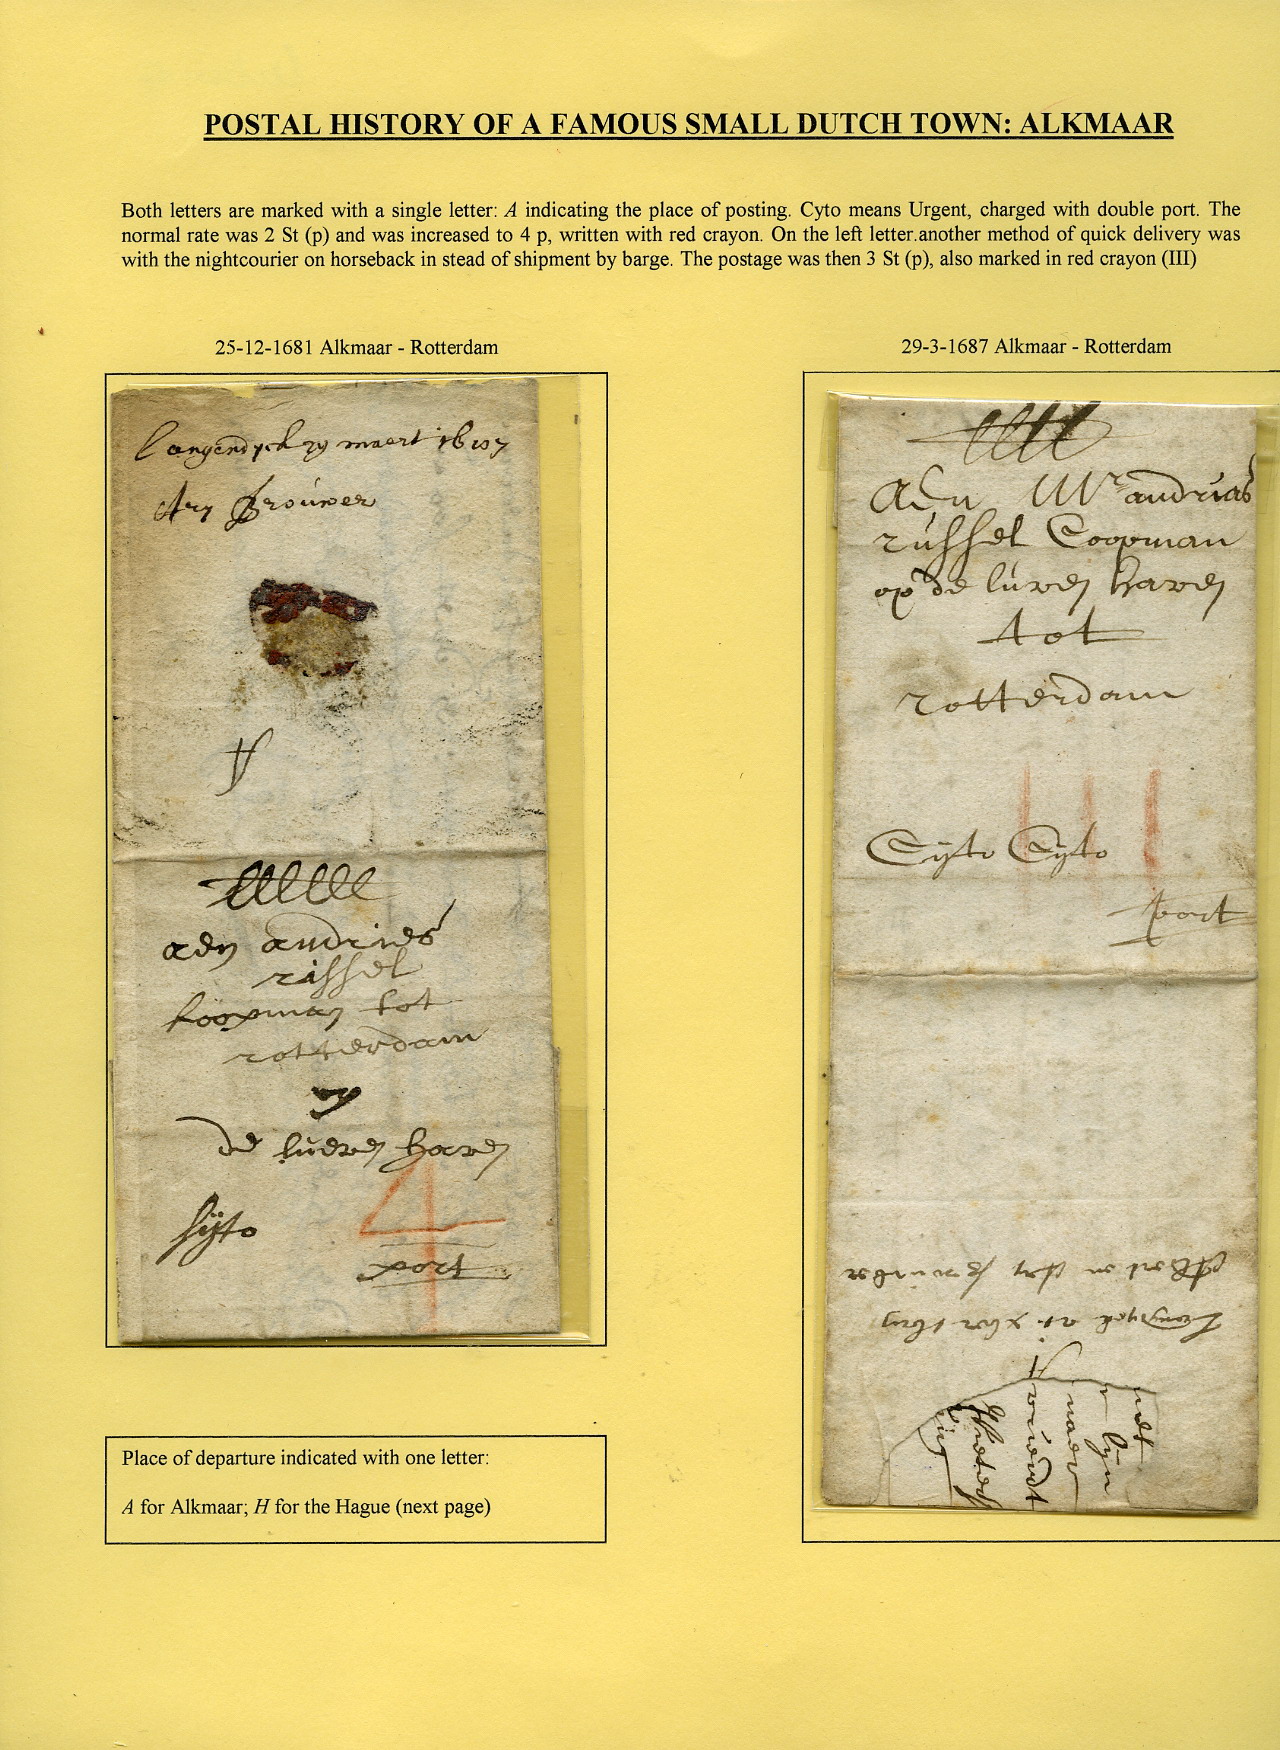 POSTAL HISTORY OF A FAMOUS SMALL DUTCH TOWN: ALKMAAR
Both letters are marked with a single letter: A indicating the place of posting. Cyto means Urgent, charged with double port. The
normal rate was 2 St (p) and was increased to 4 p, written with red crayon. On the left letter.another method of quick delivery was
with the nightcourier on horseback in stead of shipment by barge. The postage was then 3 St (p), also marked in red crayon (III)
25-12-1681 Alkmaar - Rotterdam
Langendyck 29 maert 1687
Ary Brouwer
A
aen andries
rissel
koopman tot
rotterdam
op
de lueven haven
sijto
4
port
Place of departure indicated with one letter:
A for Alkmaar; H for the Hague (next page)
29-3-1687 Alkmaar - Rotterdam
Aen Mr andrias
russel Coopman
op de luven haven
tot
rotterdam
III
Cyto Cyto
port